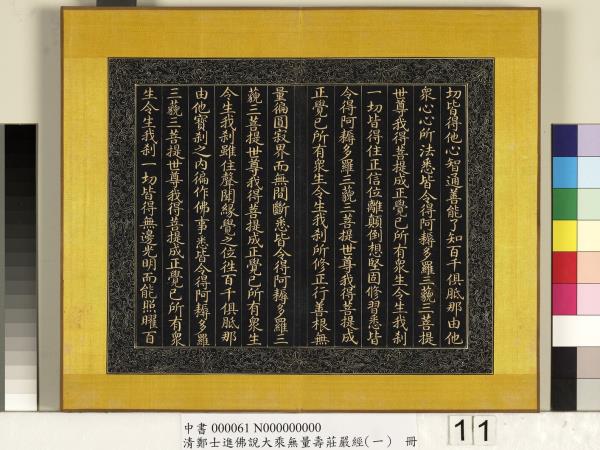 切皆得他心智通善能了知百千俱胝那由他
衆心心所法悉皆令得阿耨多羅三藐三菩提
世尊我得菩提成正覺已所有衆生令生我刹
一切皆得住正信位離顛倒想堅固修習悉皆
令得阿耨多羅三藐三菩提世尊我得菩提成
正覺已所有衆生令生我刹所修正行善根無
量徧圓寂界而無間斷悉皆令得阿耨多羅三
藐三菩提世尊我得菩提成正覺已所有衆生
令生我刹雖住聲聞緣覺之位往百千俱胝那
由他寶刹之内徧作佛事悉皆令得阿耨多羅
三藐三菩提世尊我得菩提成正覺已所有衆
生令生我刹一切皆得無邊光明而能照曜百
中書 000061 N000000000
清鄭士進佛說大乘無量壽莊嚴經(一) 冊
11